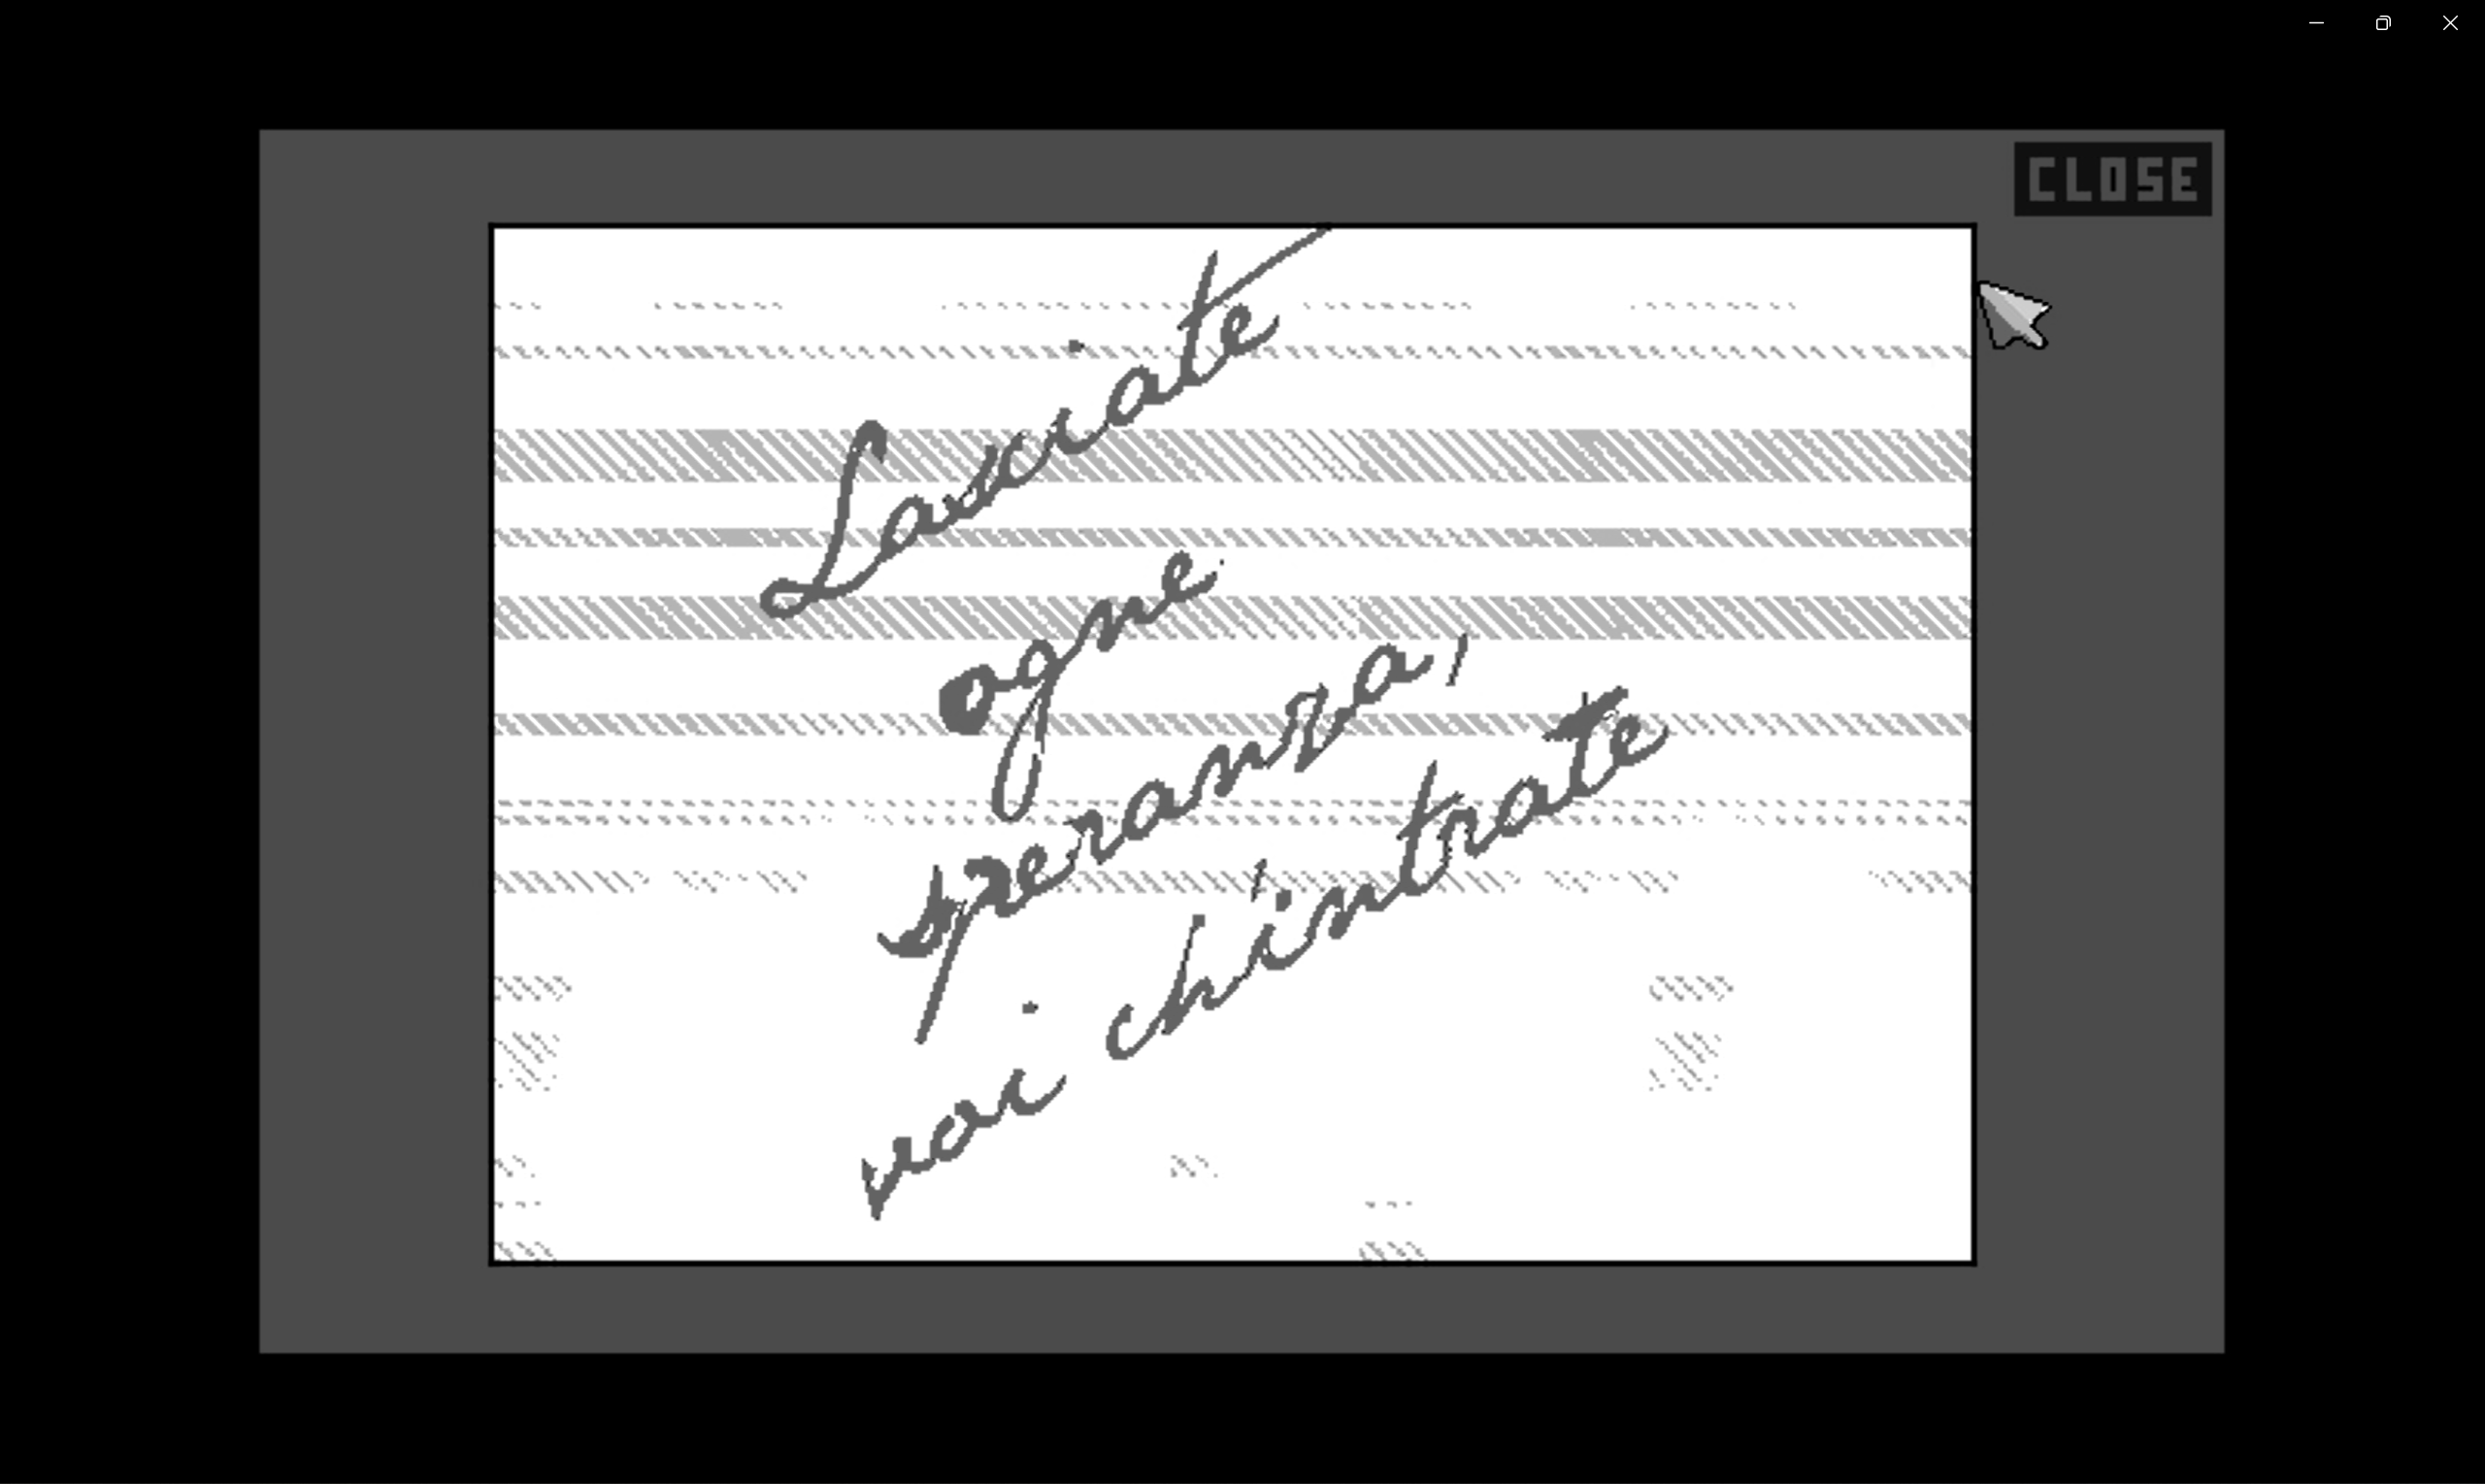 CLOSE
Lasciate
ogne
speranza,
voi ch'intrate